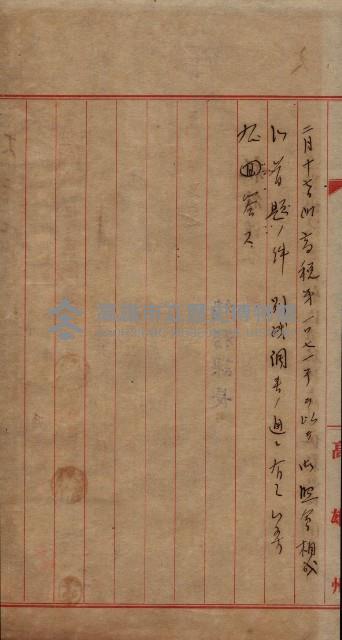 高雄州
二月十 日附高税第一〇七一号ヲ以テ御照會相成
候首題ノ件別紙調書ノ通ニ有之候条
及回答ス
課長
高雄市立歷史博物館